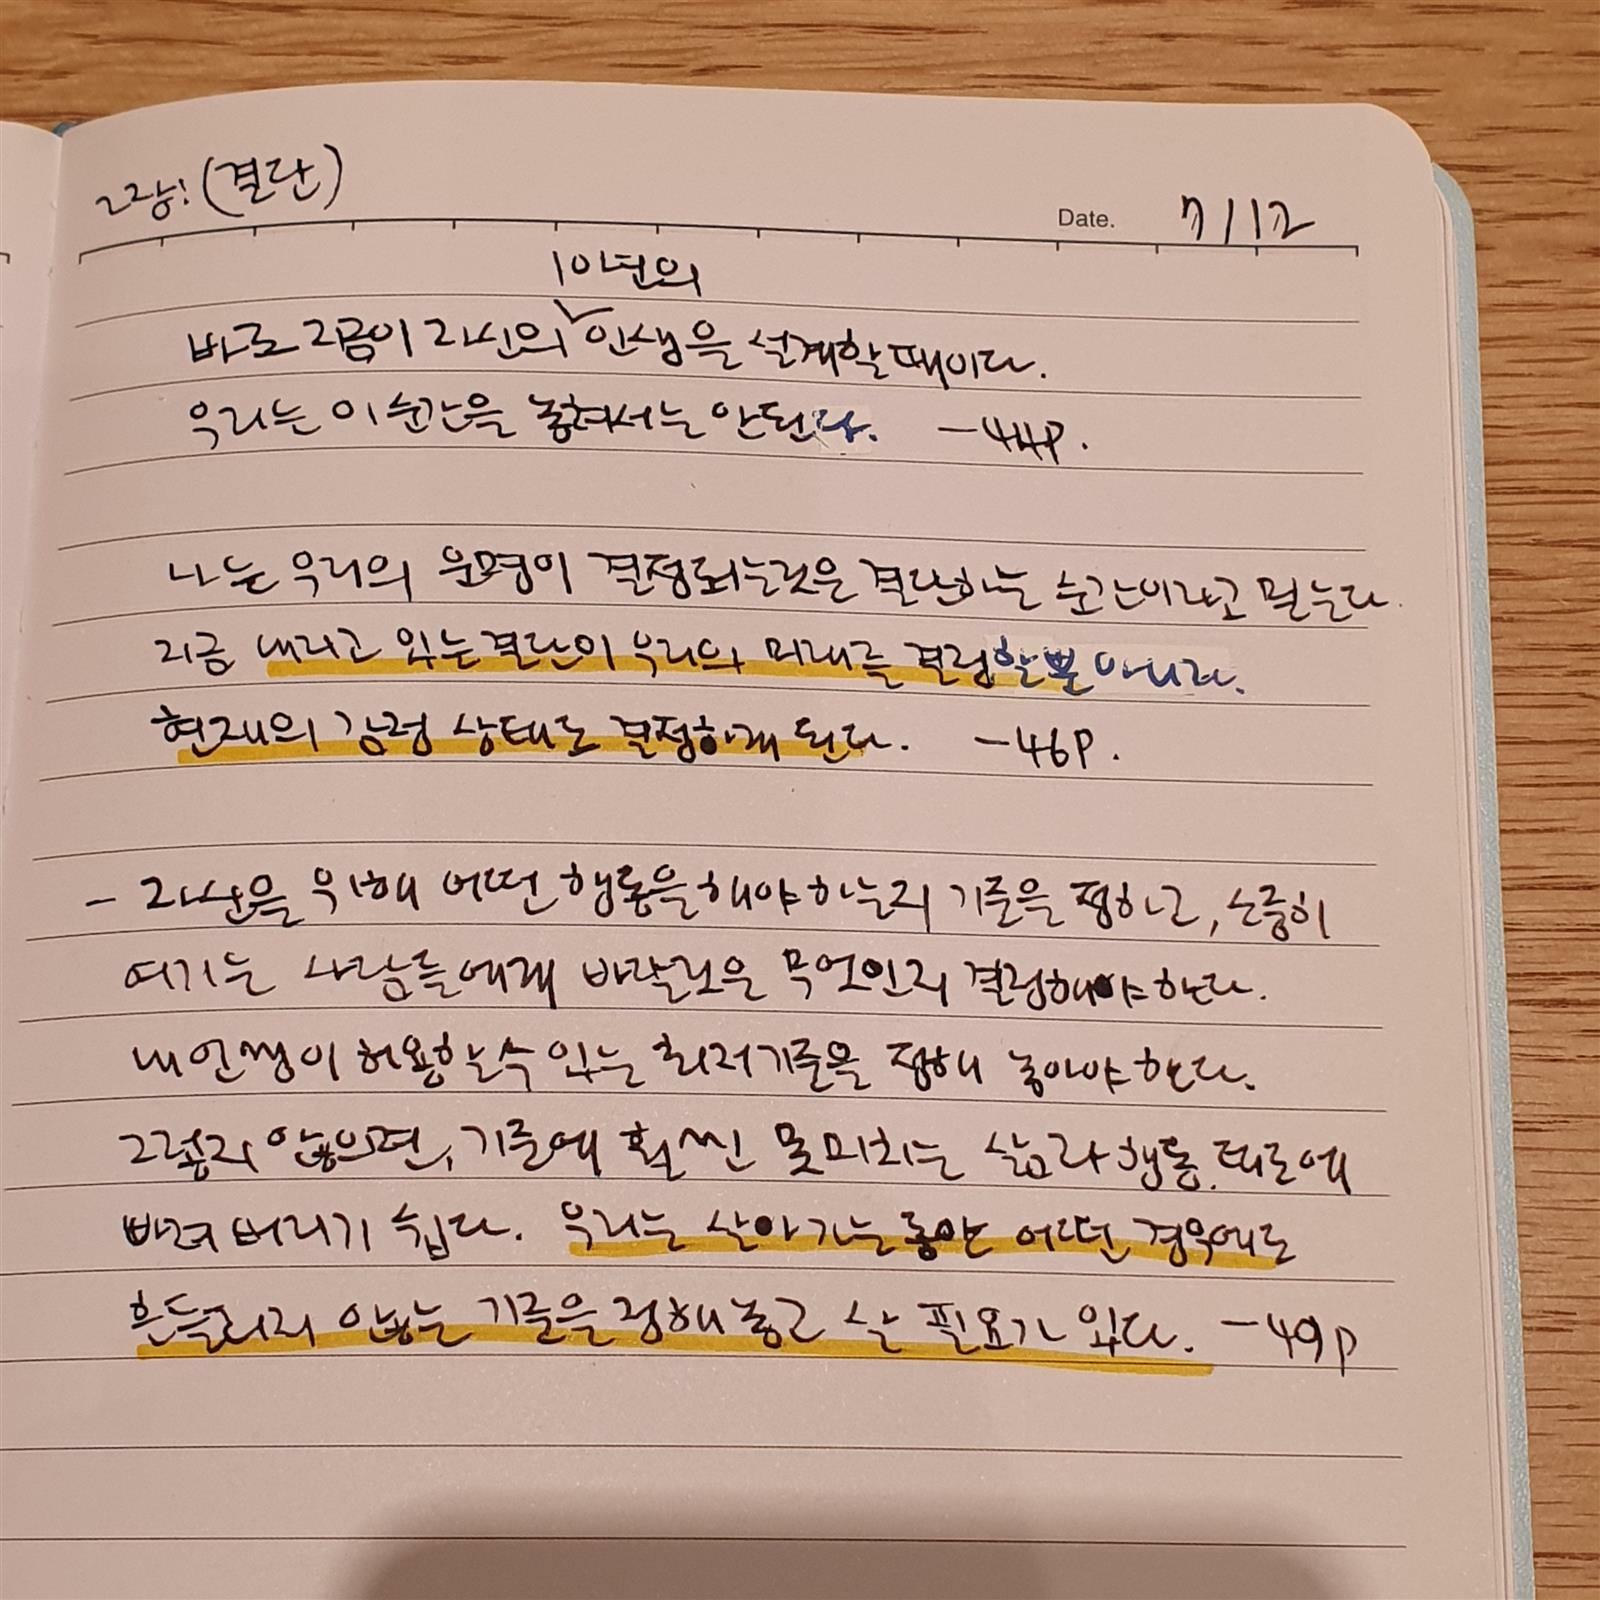 2장! (결단)
Date. 7/12
10년의
바로 지금이 자신의 인생을 설계할 때이다.
우리는 이 순간을 놓쳐서는 안된다. -44P.
나는 우리의 운명이 결정되는것은 결단하는 순간이라고 믿는다.
지금 내리고 있는 결단이 우리의 미래를 결정할 뿐 아니라.
현재의 감정 상태도 결정하게 된다. -46P.
- 자신을 위해 어떤 행동을 해야 하는지 기준을 정하고, 소중히
여기는 사람들에게 바랄것은 무엇인지 결정해야 한다.
내 인생이 허용할 수 있는 최저기준을 정해 놓아야 한다.
그렇지 않으면, 기준에 훨씬 못미치는 삶과 행동. 태도에
빠져 버리기 쉽다. 우리는 살아가는 동안 어떤 경우에도
흔들리지 않는 기준을 정해 놓고 살 필요가 있다. -49p